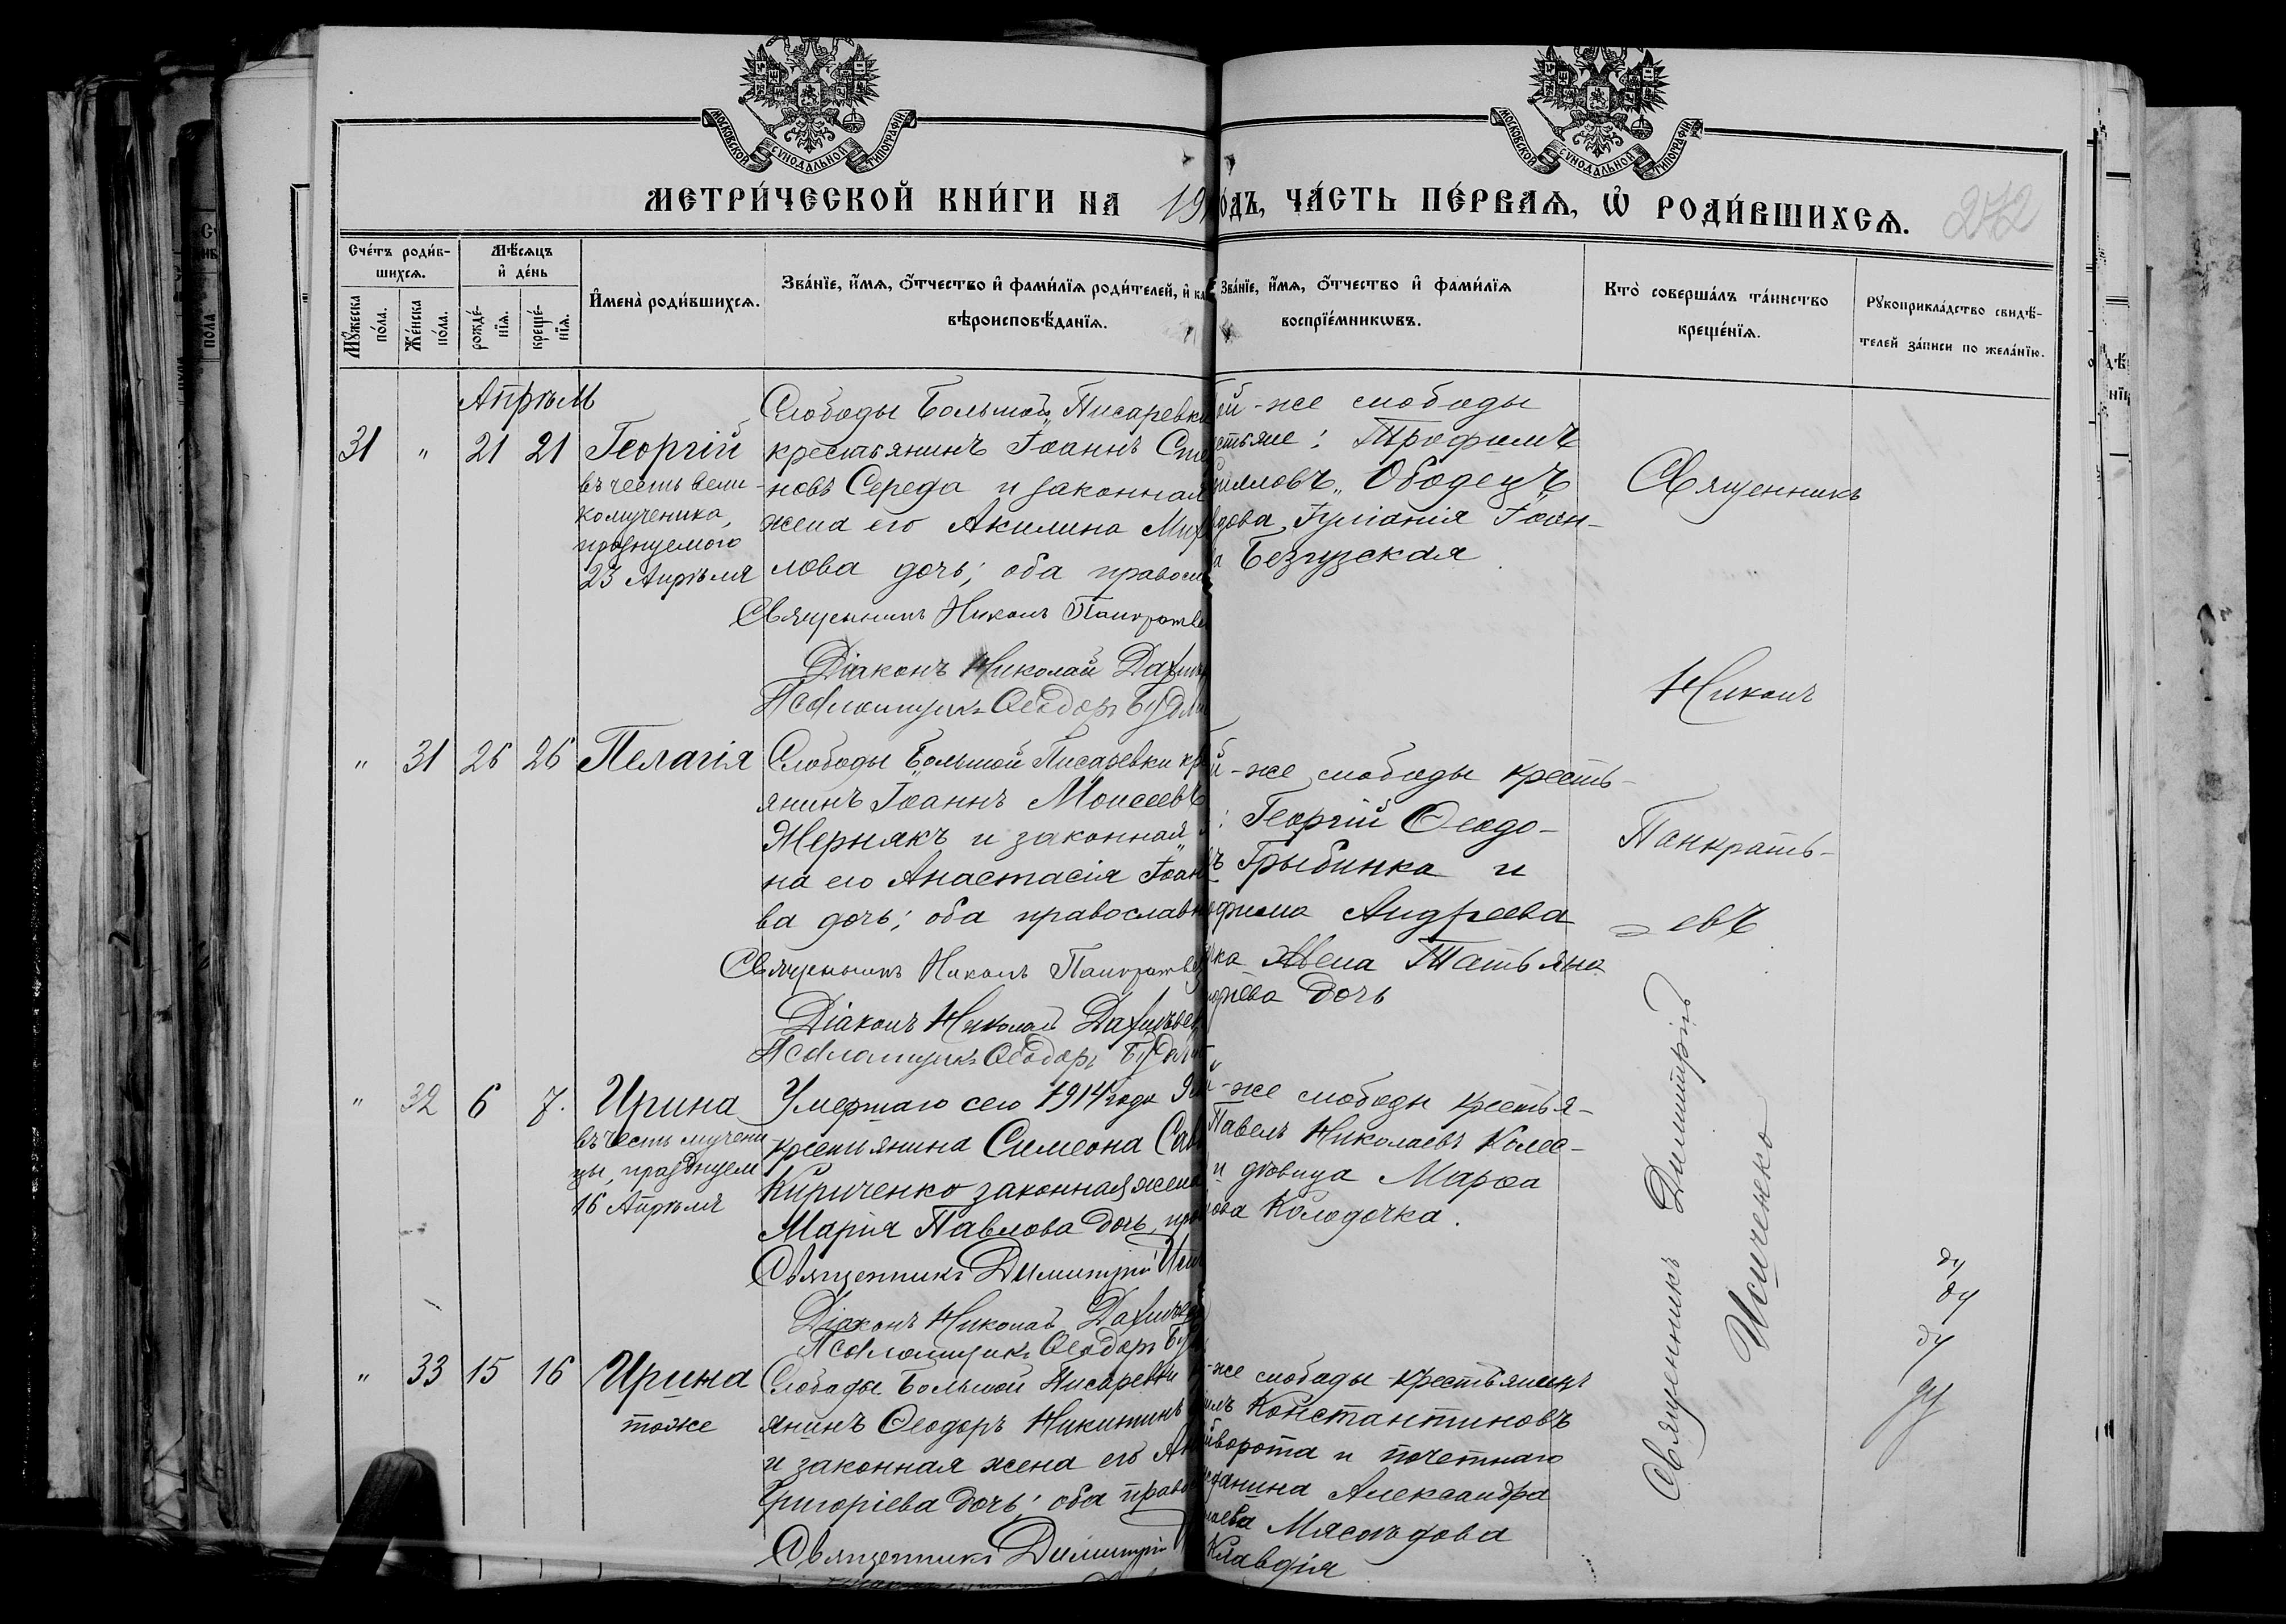 МОСКОВСКОЙ СУНОДАЛЬНОЙ ТИПОГРАФІИ
МОСКОВСКОЙ СУНОДАЛЬНОЙ ТИПОГРАФІИ
МЕТРИ́ЧЕСКОЙ КНИ́ГИ НА 19
О́ДЪ, ЧА́СТЬ ПЕ́РВАѦ, Ѡ҆ РОДИ́ВШИХСѦ.
272
Сче́тъ роди́в-
шихсѧ.
Мꙋ́жеска по́ла.
Же́нска по́ла.
Мѣ́сѧцъ
и҆ де́нь
рожде́-
нїѧ.
креще́-
нїѧ.
И҆мена̀ роди́вшихсѧ.
Зва́нїе, и҆́мѧ, ѻ҆́тчество и҆ фами́лїѧ роди́телей, и҆
вѣроисповѣ́данїѧ.
Зва́нїе, и҆́мѧ, ѻ҆́тчество и҆ фами́лїѧ
воспрїе́мникѡвъ.
Кто̀ соверша́лъ та́инство
креще́нїѧ.
Рꙋкоприкла́дство свидѣ́-
телей за́писи по жела́нїю.
Апрѣль
31 " 21 21 Георгій
въ честь вели-
комученика,
празнуемого
23 Апрѣля
Слободы Большой Писаревки
крестьянинъ Іоаннъ Сте
новъ Середа и законная
жена его Акилина Мих
лова дочь; оба правосл
Священникъ Никонъ Панкратьев
Діаконъ Николай
Псаломщикъ Ѳеодоръ
ой-же слободы
стьяне: Трофимъ
ииловъ Ободецъ
вдова Іуліанія Іоан-
а Безгузская
Священникъ
Никонъ
Панкрать-
евъ
" 31 26 26 Пелагія
Слободы Большой Писаревки кре
янинъ Іоаннъ Моисеевъ
Жернякъ и законная
на его Анастасія Іоан
ва дочь; оба православн
Священникъ Никонъ Панкратьев
Діаконъ Николай
Псаломщикъ Ѳеодоръ
й-же слободы кресть-
: Георгій Ѳеодо-
въ Грыбинка и
офима Андреева
ка жена Татьяна
оріева дочь
" 32 6 7. Ирина
въ честь мучени-
цы, празднуем
16 Апрѣля
Умершаго сего 1914 года
крестьянина Симеона Сав
Кириченко законная жена
Марія Павлова дочь, пра
Священникъ Димитрій
Діаконъ Николай
Псаломщикъ Ѳеодоръ
й-же слободы крестья-
Павелъ Николаевъ Колес-
и дѣвица Марѳа
нова Колодочка.
Священникъ Димитрій
Исиченко
" 33 15 16 Ирина
тоже
Слободы Большой Писаревки
янинъ Ѳеодоръ Никитинъ
и законная жена его
Григоріева дочь; оба право
Священникъ Димитрій
-же слободы крестьянинъ
илъ Константиновъ
иворота и почетнаго
жданина Александра
лаева Мясоѣдова
Клавдія